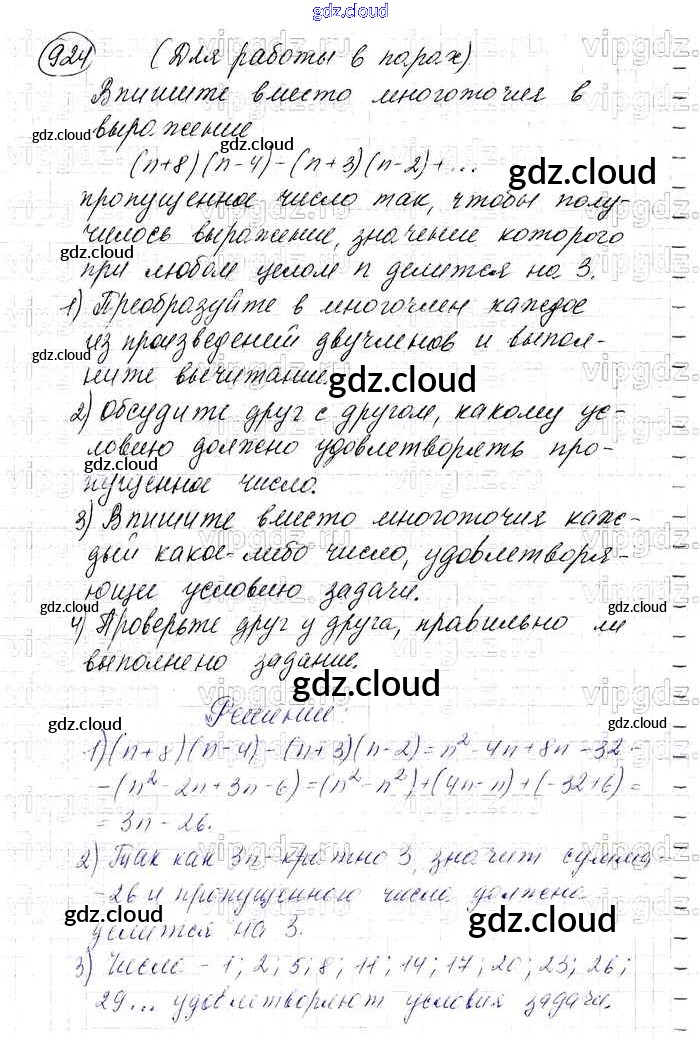 gdz.cloud
924 (Для работы в парах)
Впишите вместо многоточия в
выражение
(n+8)(n-4)-(n+3)(n-2)+...
пропущенное число так, чтобы полу-
чилось выражение, значение которого
при любом целом n делится на 3.
1) Преобразуйте в многочлен каждое
из произведений двучленов и выпол-
ните вычитание.
2) Обсудите друг с другом, какому ус-
ловию должно удовлетворять про-
пущенное число.
3) Впишите вместо многоточия каж-
дый какое-либо число, удовлетворя-
ющее условию задачи.
4) Проверьте друг у друга, правильно ли
выполнено задание.
Решение:
1) (n+8)(n-4)-(n+3)(n-2)=n²-4n+8n-32-
-(n²-2n+3n-6)=(n²-n²)+(4n-n)+(-32+6)=
=3n-26.
2) Так как 3n-кратно 3, значит сумма
-26 и пропущенного числа должна
делится на 3.
3) Числа -1; 2; 5; 8; 11; 14; 17; 20; 23; 26;
29... удовлетворяют условия задачи.